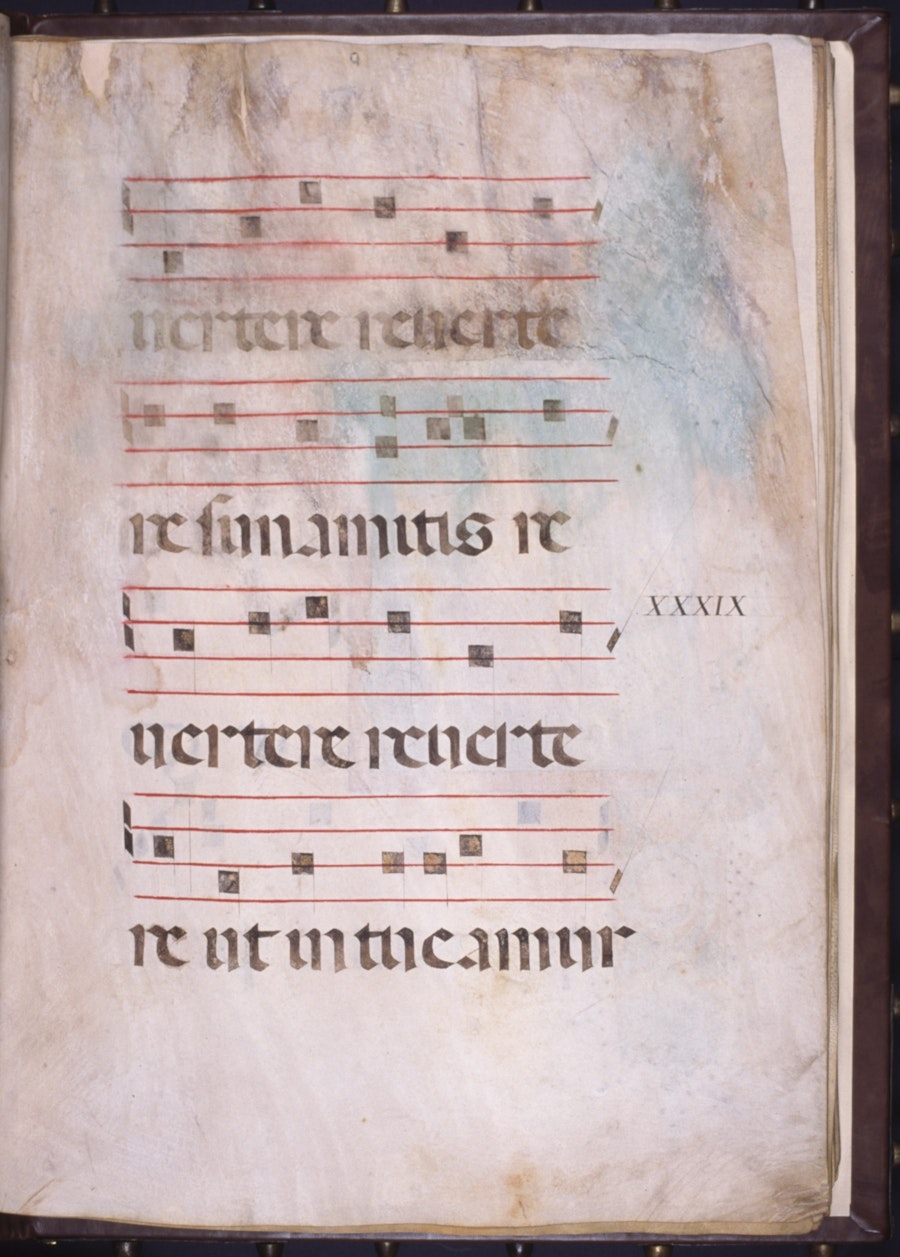 uertere reuerte
re sunamitis re
XXXIX
uertere reuerte
re ut intueamur